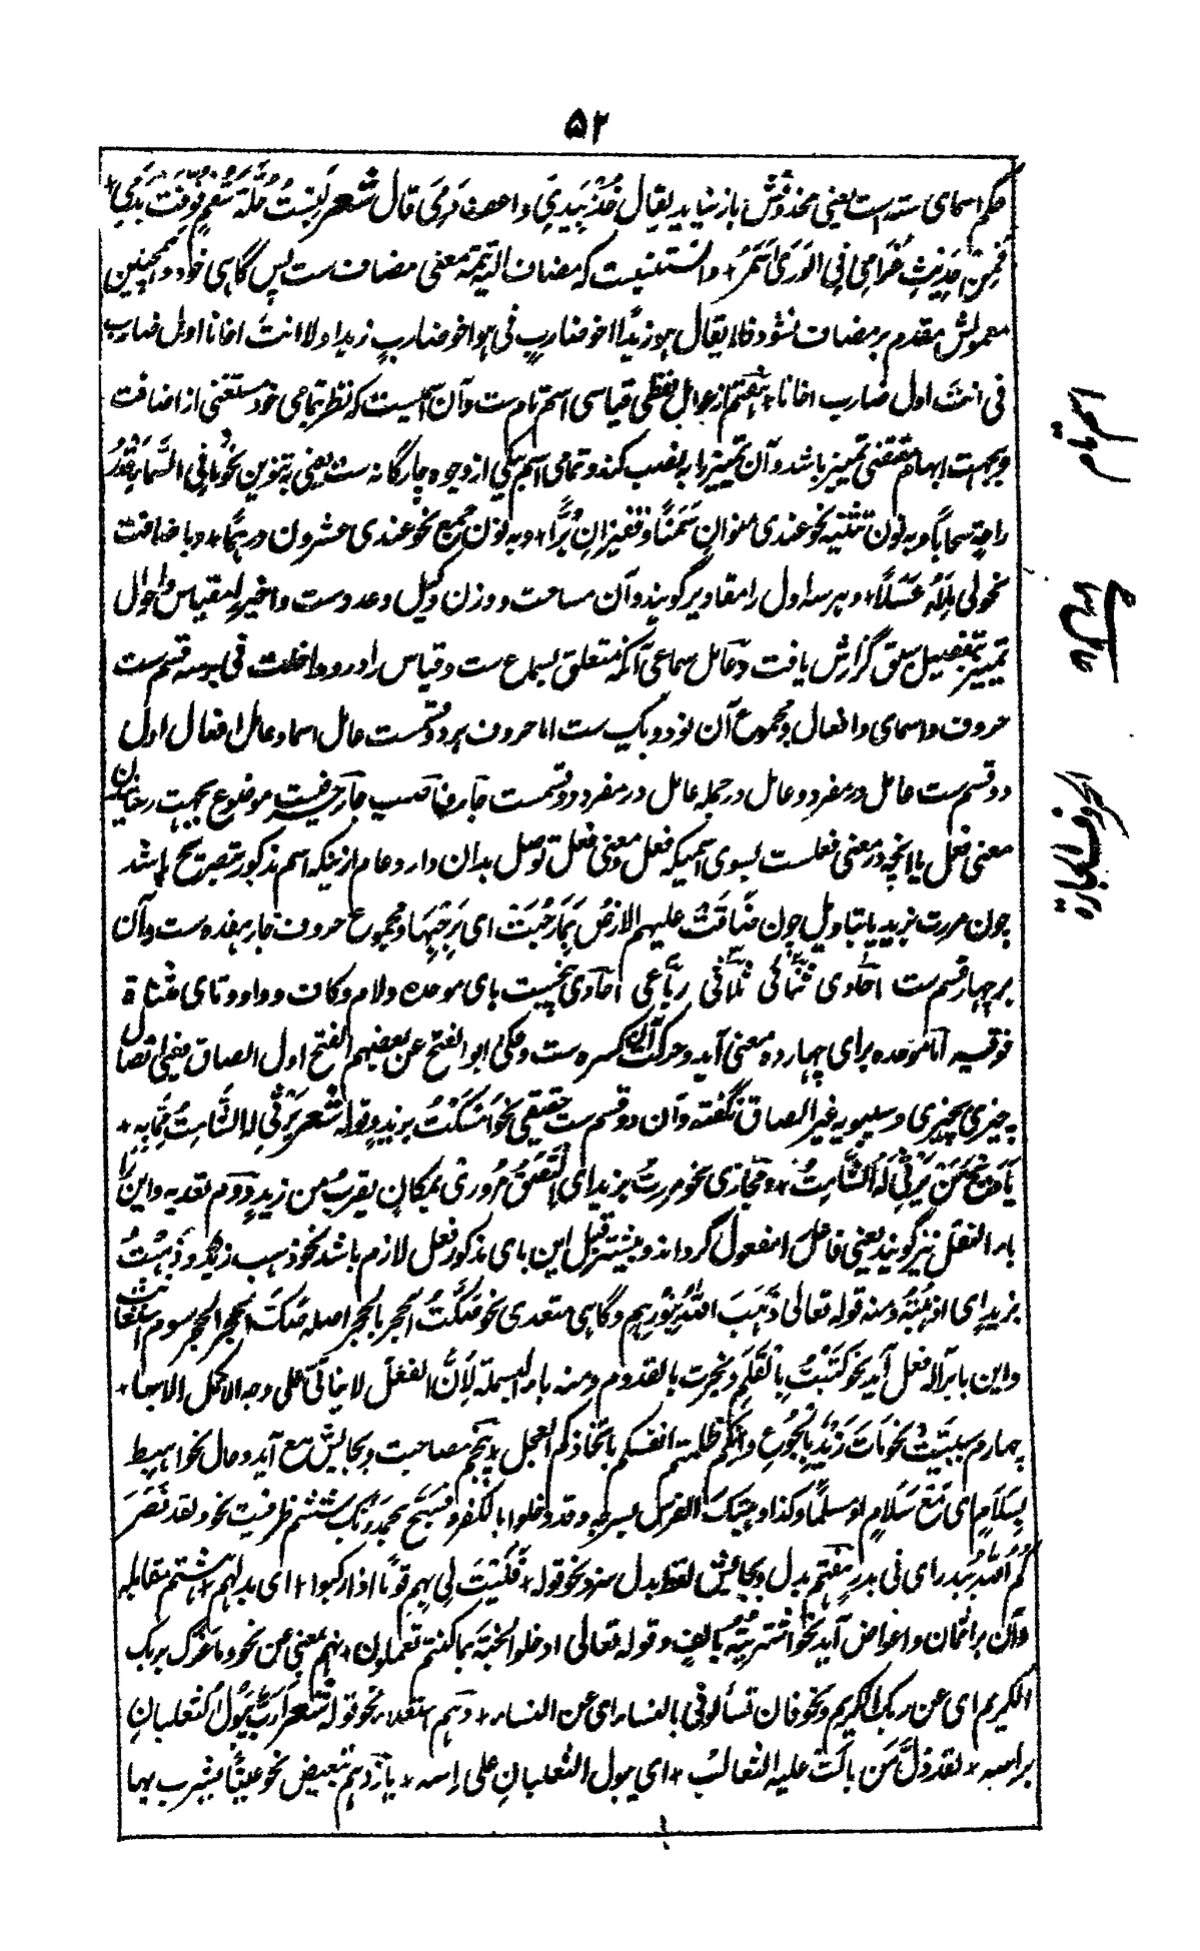 ۵۲
حکم اسمای سته است یعنی محذوفش باز نیاید یقال خُذْ بِیَدِیَ و اعصف دَمِیَ قال شعر لَبِسْتُ حُلَّةَ سُقْمٍ فُوِّفَتْ بِدَمِی +
فمن حَدِیثِ غَرَامِی فِی الْوَرَیٰ سَمَرُ + و دانستنیست که مضاف الیه تتمه معنی مضاف ست پس گاهی خود و همچنین
معمولش مقدم بر مضاف نشود فلا یقال هو زیدًا اخو ضاربٍ فی هو اخو ضاربٍ زیدا و لا انت اخانا اول ضارب
فی انت اول ضارب اخانا + هفتم از عوامل لفظی قیاسی اسم تام ست و آن اسمیست که نظر بتمامی خود مستغنی از اضافت
و بجهت ابهام مقتضی تمییز باشد و آن تمییز را به نصب کند و تمامی اسم بیکی از وجوه چارگانه ست یعنی به تنوین نحو ما فی السَّمَاءِ قَدْرُ
راحةٍ سحابًا و به نون تثنیه نحو عندی منوانِ سَمَنًا و قفیزانِ بُرًّا + و به نون جمع نحو عندی عشرون درهمًا + و باضافت
نحو لی مِلْأُهُ عَسَلًا + و هر سه اول را مقادیر گویند و آن مساحت و وزن و کیل و عدد ست و اخیر را مقیاس و احوال
تمییز بتفصیل سابق گزارش یافت و عامل سماعی آنکه متعلق بسماع ست و قیاس را درو مداخلت نی بر سه قسم ست
حروف و اسمای و افعال و مجموع آن نود و یک ست اما حروف بر دو قسمت عامل اسما و عامل افعال اول
دو قسم ست عامل در مفرد و عامل در جمله عامل در مفرد دو قسمت جار و ناصب جار حرفیست موضوع بجهت رسانیدن
معنی فعل یا انچه در معنی فعلست بسوی اسمیکه فعل و معنی فعل توصل بدان دارد عام ازینکه اسم مذکور بتصریح باشد
چون مررت بزیدٍ یا بتاویل چون ضَاقَتْ علیهم الارضُ بِمَا رَحُبَتْ ای بِرُحْبِهَا و مجموع حروف جار هفده ست و آن
بر چهار قسم ست احادی ثنائی ثلاثی رباعی احادی پنجست بای موحده و لام و کاف و واو و تای مثناة
فوقیه اما موحده برای چهارده معنی آید و حرکت آن کسره ست و حکی ابو الفتح عن بعضهم الفتح اول الصاق یعنی اتصال
چیزی بچیزی و سیبویه غیر الصاق نگفته و آن دو قسم ست حقیقی نحو اَمْسَکْتُ بزیدٍ و قوله شعر یَرْثِی له الشَّامِتُ مِمَّا بِهِ +
یا وَیْحَ مَنْ یَرْثِی لَهُ الشَّامِتُ + و مجازی نحو مررتُ بزیدٍ ای الْتَصَقَ مُرُورِیْ بمکانٍ یقربُ من زیدٍ دوم تعدیه و این را
باء النقل نیز گویند یعنی فاعل را مفعول گرداند و بیشتر قبل این بای مذکور فعل لازم باشد نحو ذهب زیدٌ و ذَهَبْتُ
بزیدٍ ای اذهبتُهُ و منه قوله تعالی ذَهَبَ اللهُ بِنُورِهِم و گاهی متعدی نحو صَکَکْتُ الحجرَ بالحجرِ اصله صَکَّ الحجرُ الحجرَ سوم استعانت
و این با برآله فعل آید نحو کَتَبْتُ بِالْقَلَمِ و نجرت بالقدوم و منه باء البسملة لِأَنَّ الفعلَ لا یتأتّٰی علی وجه الاکمل الا بها +
چهارم سببیّت نحو مَاتَ زَیْدٌ بِالْجُوْعِ و اِنَّکم ظلمتم انفسکم باتخاذکم العجل + پنجم مصاحبت و بجایش مع آید و حال نحو اهبط
بِسَلَامٍ ای مَعَ سَلَامٍ او مسلمًا و کذا وهبتک الفرس بسرجه و قد دخلوا بالکفر و فسبّح بحمد ربّک ششم ظرفیت نحو و لقد نَصَرَ
کُمُ اللّٰهُ بِبَدْرٍ ای فی بدرٍ هفتم بدل و بجایش لفظ بدل سزد نحو قوله + فَلَیْتَ لِی بِهِمِ قومًا اذا رکبوا + ای بدلهم + هشتم مقابله
و آن بر اثمان و اعواض آید نحو اشتریتُهُ بالفٍ و قوله تعالی ادخلوا الجنّة بما کنتم تعملون + نهم بمعنی عن نحو و ما غرّک بربک
الکریم ای عن ربک الکریم و نحو فان تسألونی بالنساء ای عن النساء + دهم استعلاء نحو قوله شعر اَرَبٌّ یَبُوْلُ الثعلبانِ
براسه + لقد ذلَّ مَن بالَت علیه الثعالبُ + ای یبول الثعلبانِ علی راسه + یازدهم تبعیض نحو عینًا یشرب بها
اسم تام
عامل سماعی
الحروف الجارة